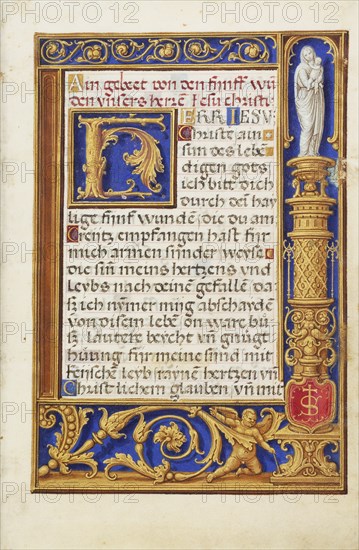 Ain gebeet von den fünff wu
den vnsers herrē Jesu christi
HERR IESV
Christe ain
sun des lebē
digen gots
ich bitt dich
durch den hay
lige fünf wunden, die du am
Creutz empfangen hast für
mich armen sünder, weyse
die sin meins hertzens vnd
leybs nach deinē gefallē da
sz ich nymer ming abschayde
von disem lebē on ware bü
sz, lautere beycht vn̄ gnügt
hüung für meine sünd mit
leyb, raynē hertzen vn̄
Christlichem glauben vn̄ mit